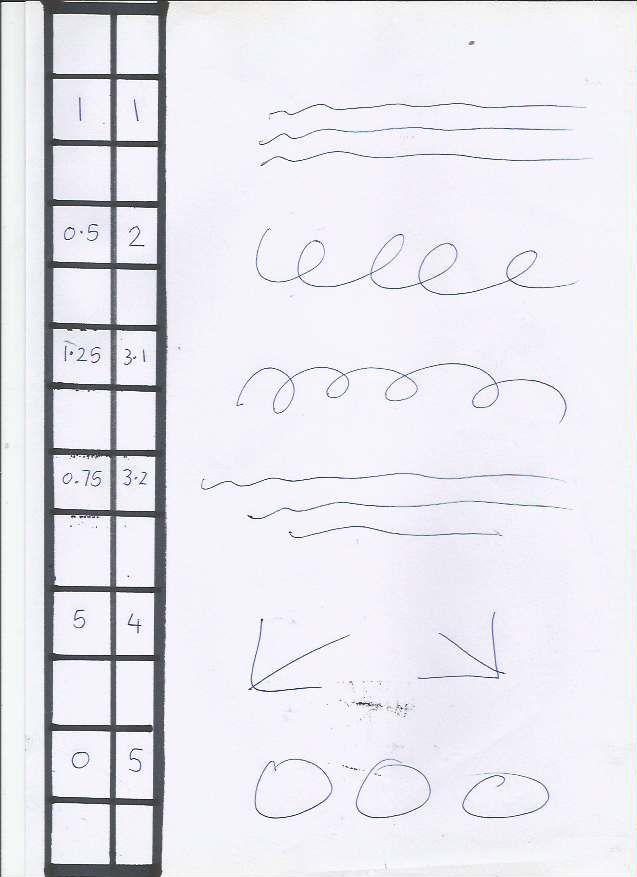 1 1
0.5 2
1.25 3.1
0.75 3.2
5 4
0 5